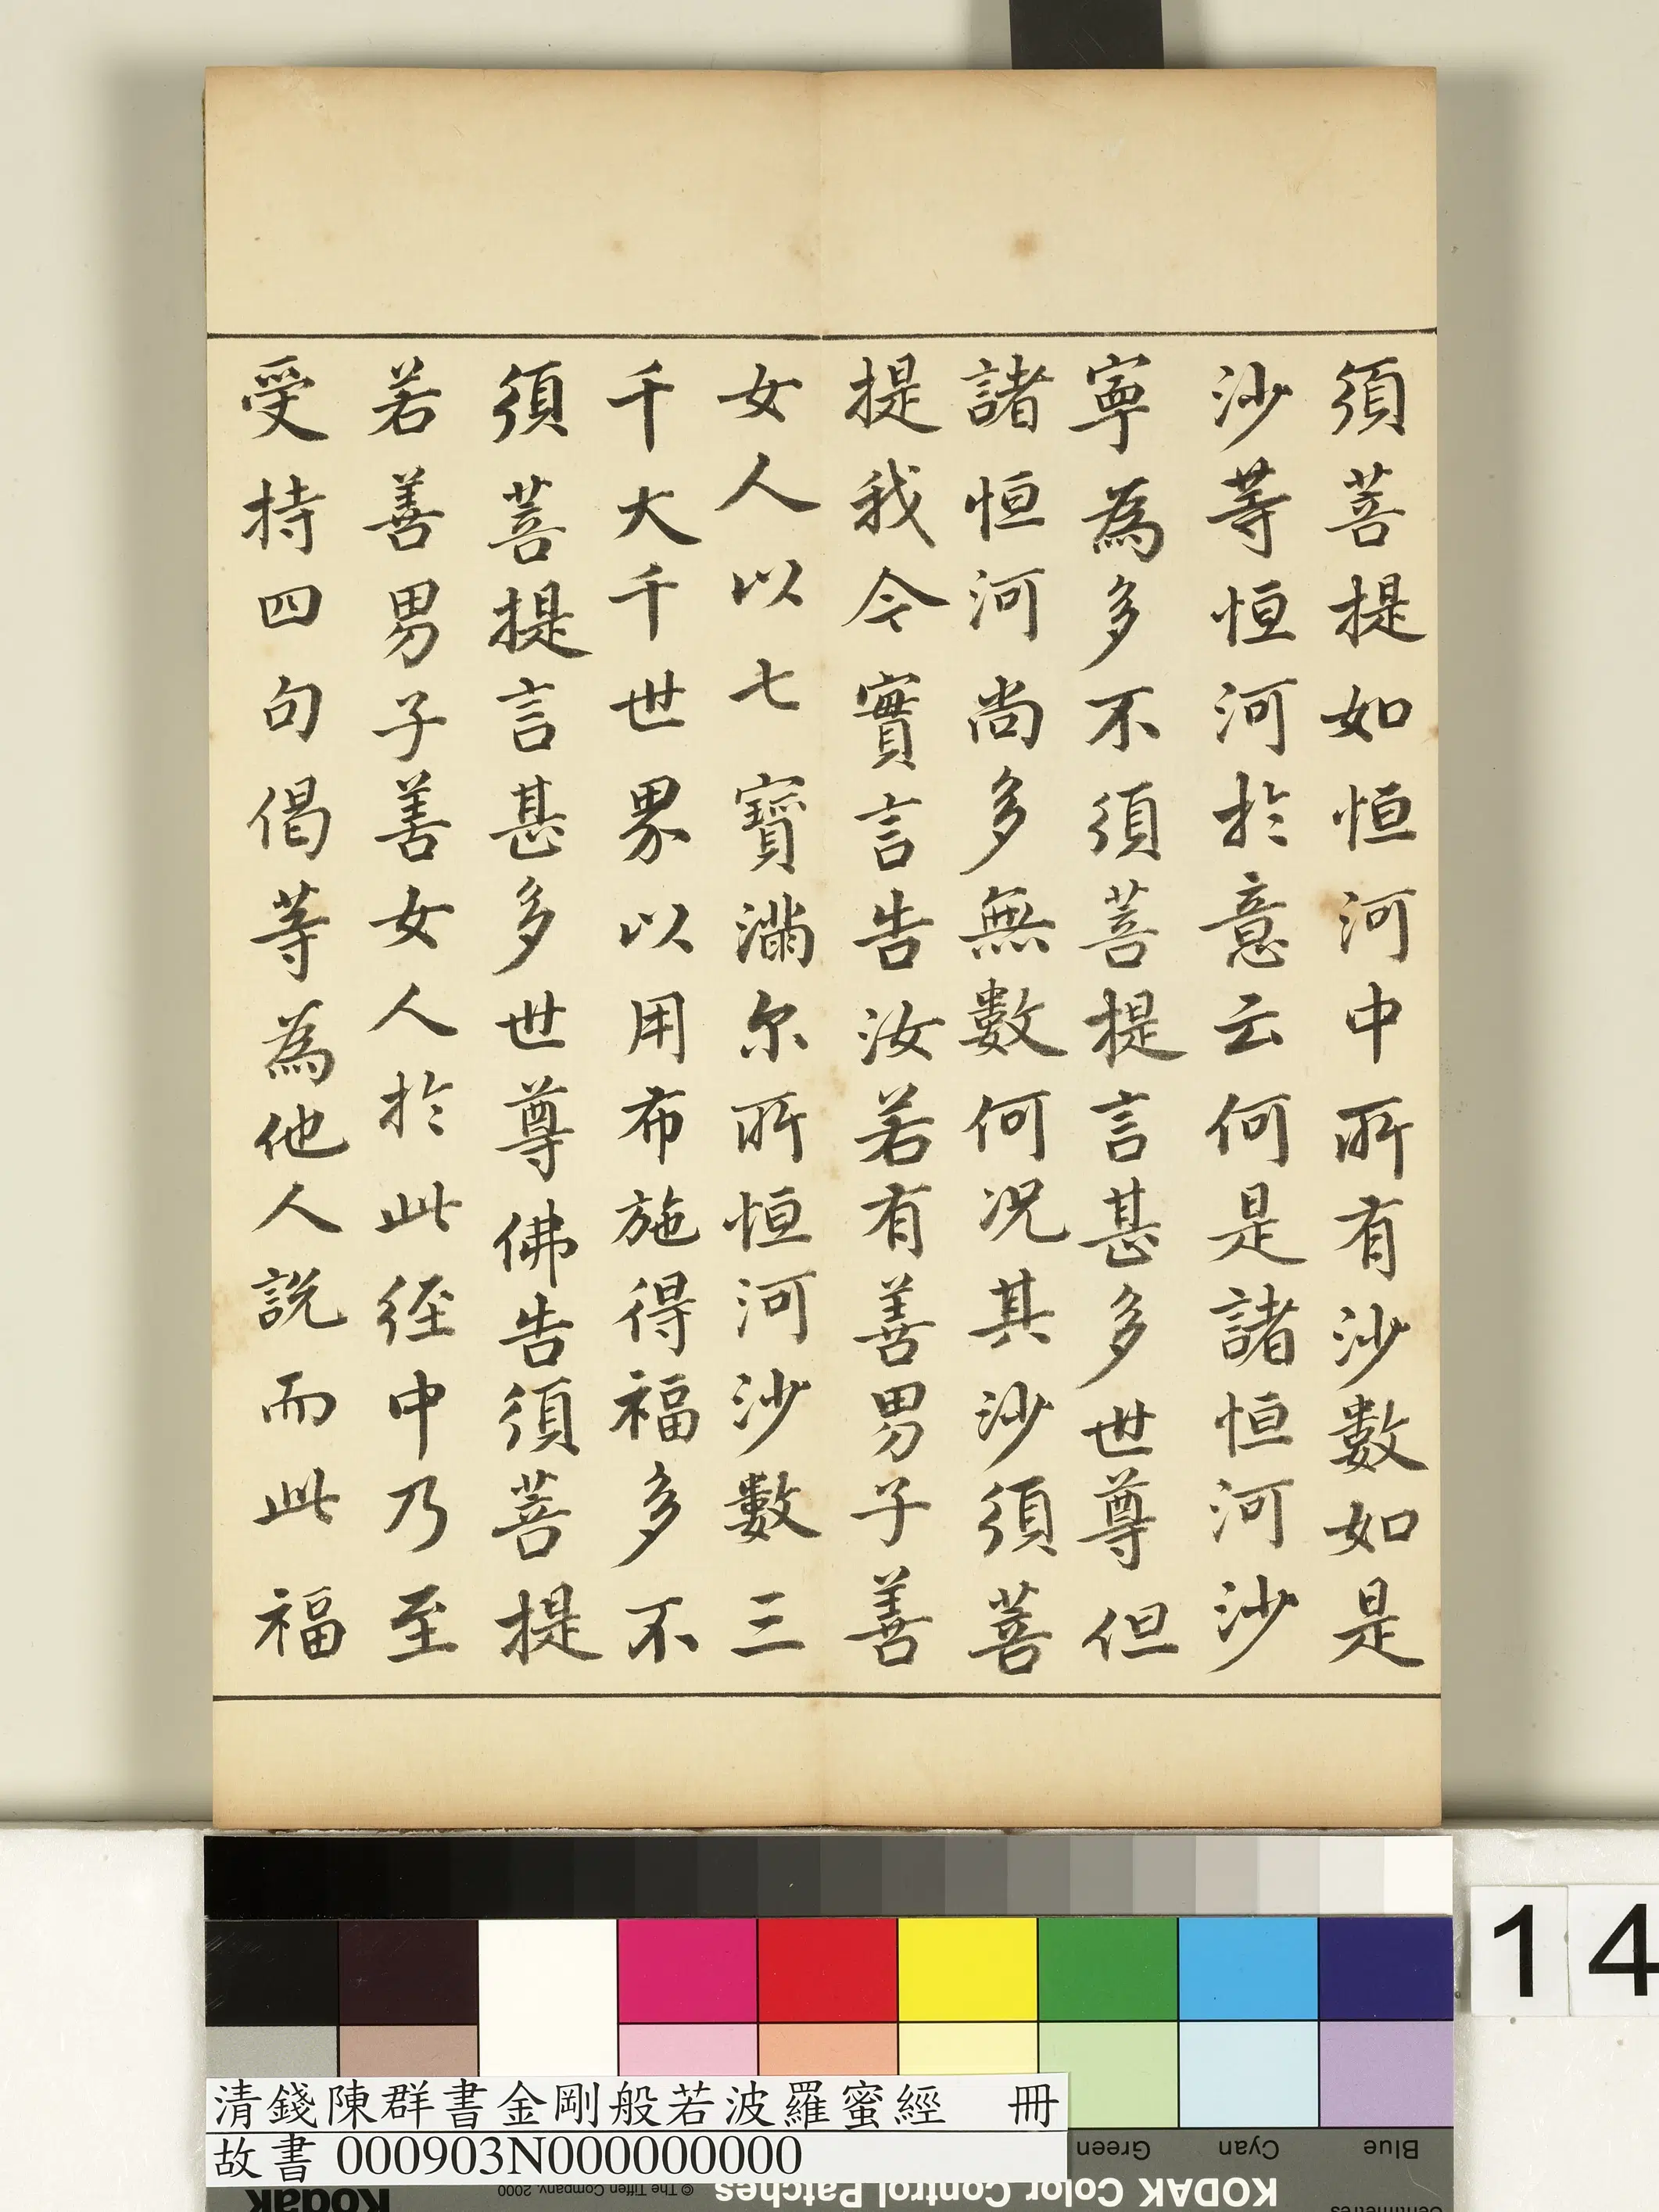 須菩提如恒河中所有沙數如是
沙等恒河於意云何是諸恒河沙
寧為多不須菩提言甚多世尊但
諸恒河尚多無數何况其沙須菩
提我今實言告汝若有善男子善
女人以七寶滿尔所恒河沙數三
千大千世界以用布施得福多不
須菩提言甚多世尊佛告須菩提
若善男子善女人於此經中乃至
受持四句偈等為他人說而此福
14
清錢陳群書金剛般若波羅蜜經 冊
故書 000903N000000000
Green Cyan Blue
KODAK Color Control Patches
© The Tiffen Company, 2000
Kodak
Centimetres